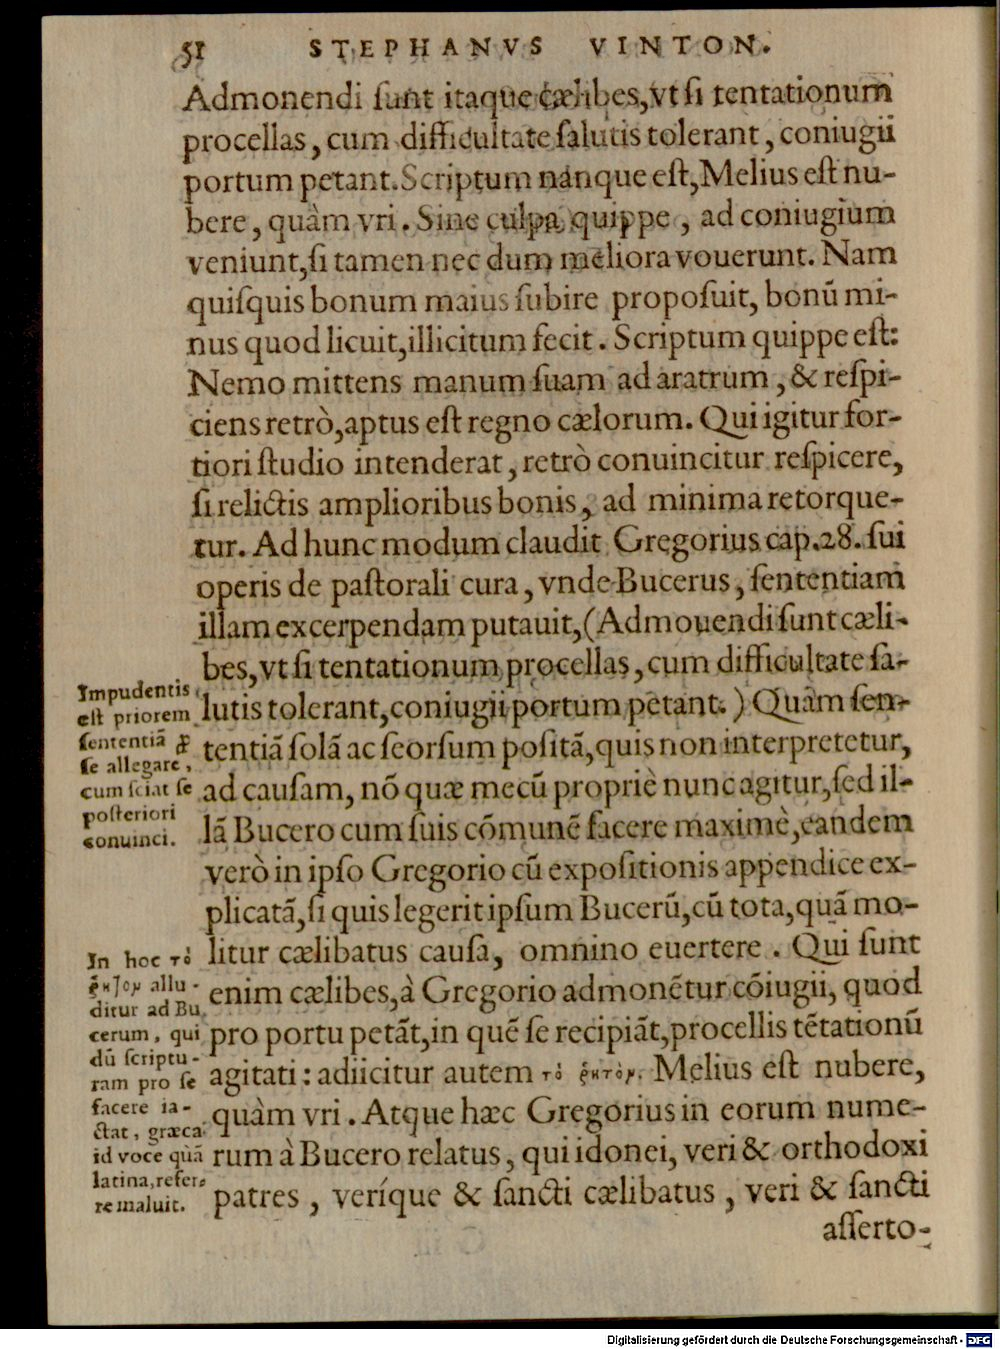 51 STEPHANVS VINTON.
Admonendi ſunt itaque cælibes,vt ſi tentationum
procellas, cum difficultate ſalutis tolerant, coniugii
portum petant. Scriptum nanque eſt, Melius eſt nu-
bere, quàm vri. Sine culpa quippe, ad coniugium
veniunt,ſi tamen nec dum meliora vouerunt. Nam
quiſquis bonum maius ſubire propoſuit, bonū mi-
nus quod licuit,illicitum fecit. Scriptum quippe eſt:
Nemo mittens manum ſuam ad aratrum, & reſpi-
ciens retrò,aptus eſt regno cælorum. Qui igitur for-
tiori ſtudio intenderat, retrò conuincitur reſpicere,
ſi relictis amplioribus bonis, ad minima retorque-
tur. Ad hunc modum claudit Gregorius cap.28. ſui
operis de paſtorali cura, vnde Bucerus, ſententiam
illam excerpendam putauit,(Admouendi ſunt cæli-
bes,vt ſi tentationum procellas, cum difficultate ſa-
lutis tolerant,coniugii portum petant.) Quàm ſen-
tentiā ſolā ac ſeorſum poſitā,quis non interpretetur,
ad cauſam, nō quæ mecū propriè nunc agitur,ſed il-
lā Bucero cum ſuis cōmunē facere maximè,eandem
verò in ipſo Gregorio cū expoſitionis appendice ex-
plicatā,ſi quis legerit ipſum Bucerū,cū tota,quā mo-
litur cælibatus cauſa, omnino euertere. Qui ſunt
enim cælibes,à Gregorio admonētur cōiugii, quod
pro portu petāt,in quē ſe recipiāt,procellis tētationū
agitati: adiicitur autem τὸ ῥητὸν. Melius eſt nubere,
quàm vri. Atque hæc Gregorius in eorum nume-
rum à Bucero relatus, qui idonei, veri & orthodoxi
patres, veríque & ſancti cælibatus, veri & ſancti
aſſerto-
Impudentis
eſt priorem
ſententiā ꝓ
ſe allegare,
cum ſciat ſe
poſteriori
conuinci.
In hoc τὸ
ῥητὸν allu-
ditur ad Bu
cerum, qui
dū ſcriptu-
ram pro ſe
facere ia-
ctat, græca
id voce quā
latina,refer-
re maluit.
Digitalisierung gefördert durch die Deutsche Forschungsgemeinschaft - DFG